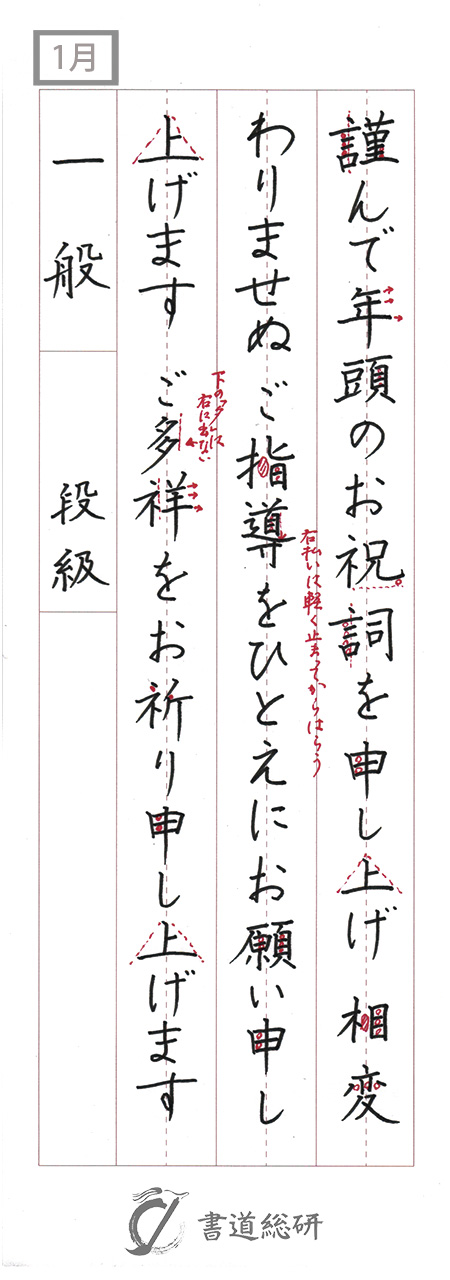 1月
謹んで年頭のお祝詞を申し上げ 相変
わりませぬご指導をひとえにお願い申し
上げます ご多祥をお祈り申し上げます
一般
段級
右払いは軽く止まってからはらう
下のタは右に出ない
書道総研